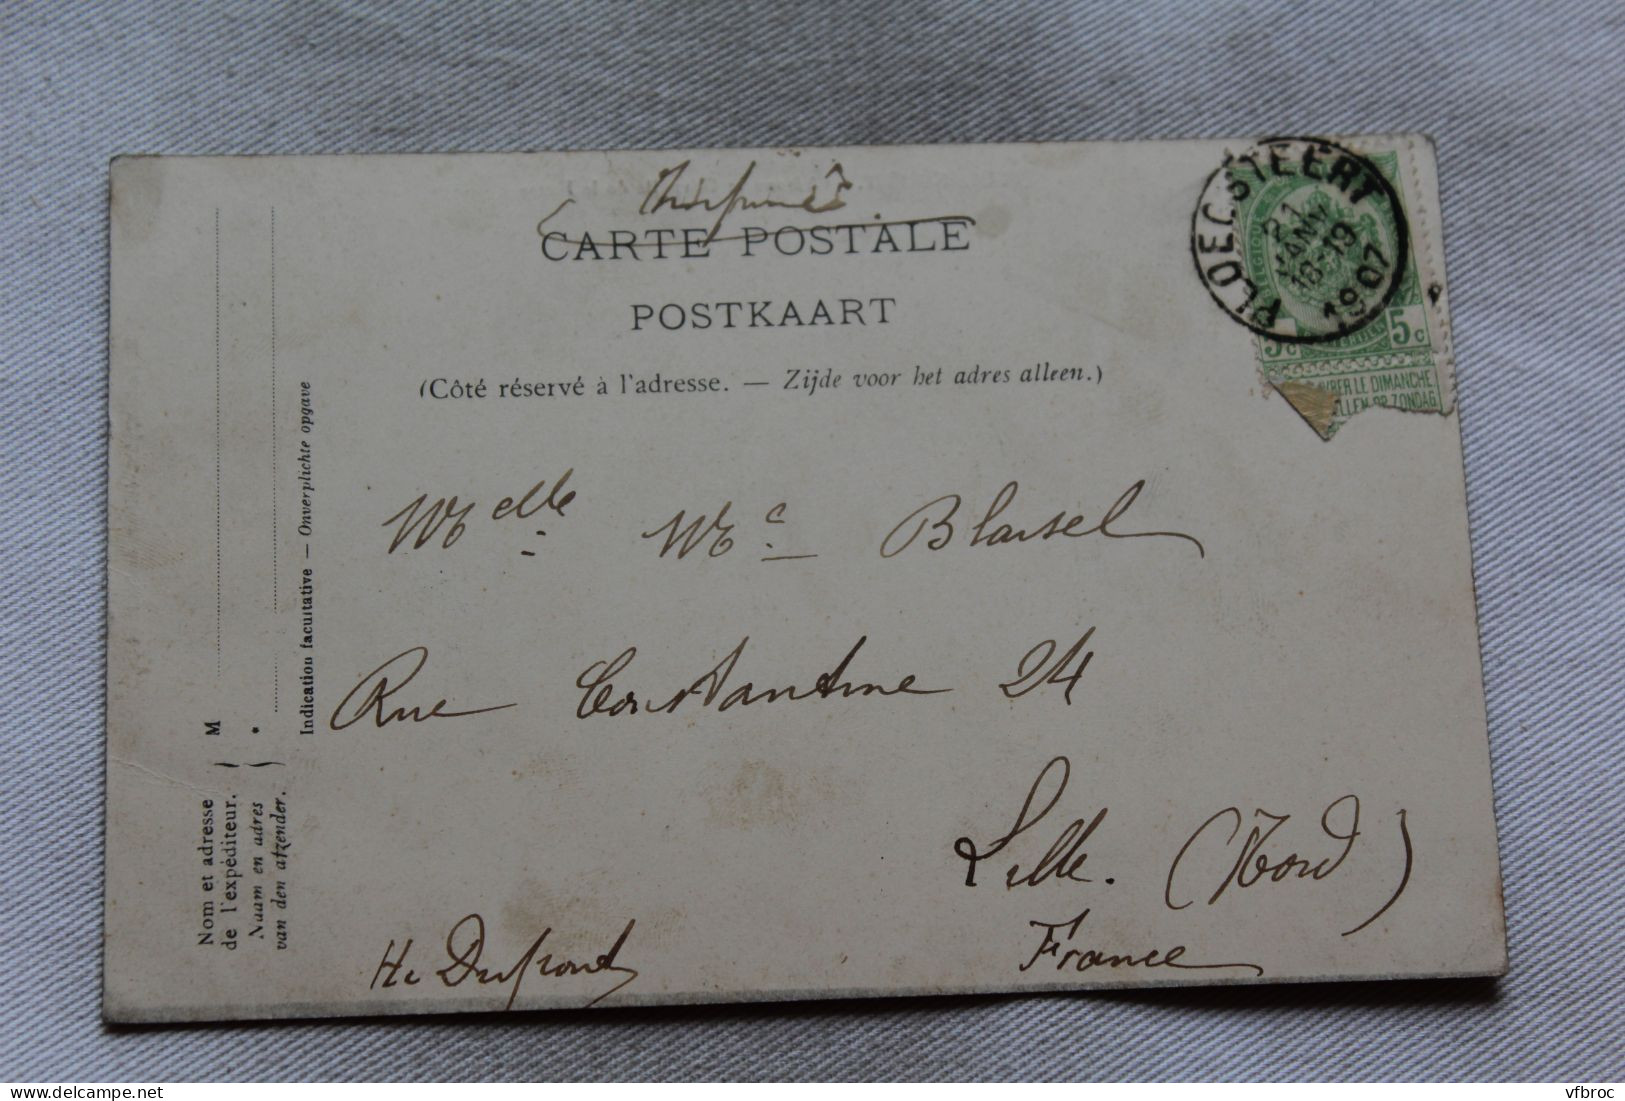 Imprimé
CARTE POSTALE
POSTKAART
(Côté réservé à l'adresse. — Zijde voor het adres alleen.)
PLOEGSTEERT
21
JANV
18-19
1907
5 c 5 c
LE DIMANCHE
OP ZONDAG
Melle M.e Blaisel
Rue Constantine 24
Lille. (Nord)
France
He Dupond
Nom et adresse
de l'expéditeur.
Naam en adres
van den afzender.
M
Indication facultative — Onverplichte opgave
vfbroc